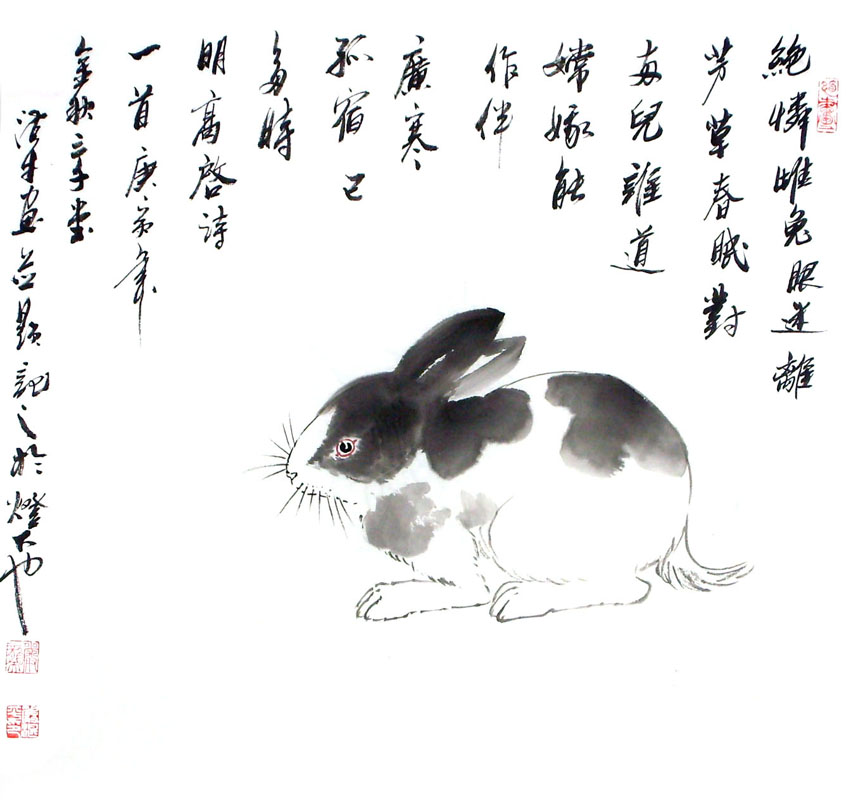 絕憐雌兔眼迷離
芳草春眠對
母兒誰道
嫦娥能
作伴
廣寒
孤宿已
多時
明高啓詩
一首庚寅年
金秋
畫並題記之於燈下也